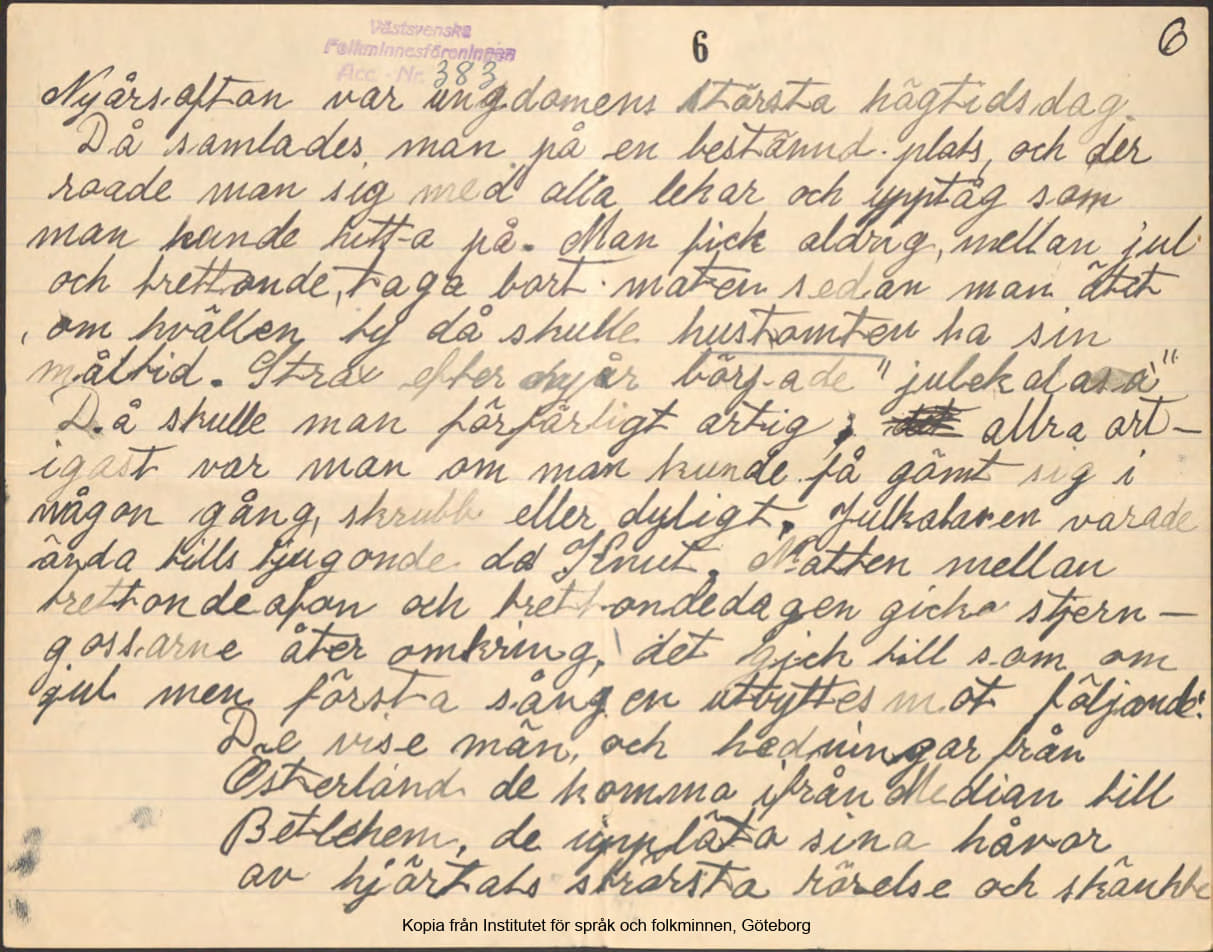 Västsvenska
Folkminnesföreningen
Acc. Nr. 383
6
6
Nyårsafton var ungdomens största högtidsdag.
Då samlades man på en bestämd plats, och der
roade man sig med alla lekar och upptåg som
man kunde hitta på. Man fick aldrig, mellan jul
och trettonde, taga bort maten sedan man ätit
om kvällen ty då skulle hustomten ha sin
måltid. Strax efter nyår började "julekalasa"
Då skulle man förfärligt artig, allra art-
igast var man om man kunde få gömt sig i
någon gång, skrubb eller dyligt. Julkalasen varade
ända tills tjugonde da Knut. Natten mellan
trettondeafon och trettondedagen gick stjern-
gossarne åter omkring, det gick till som om
jul men första sången utbyttes mot följande:
De vise män, och hedningar från
Österland de komma ifrån Median till
Betlehem, de upplåta sina håvor
av hjärtats största rörelse och skänkte
Kopia från Institutet för språk och folkminnen, Göteborg